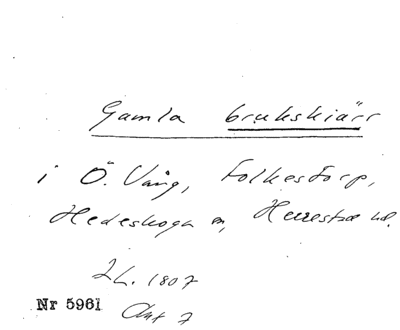 Gamla brukskiärr
i Ö. Vång, Folkestorp,
Hedeskoga sn, Herrestad hd.
LL. 1807
Nr 5961
Akt 7